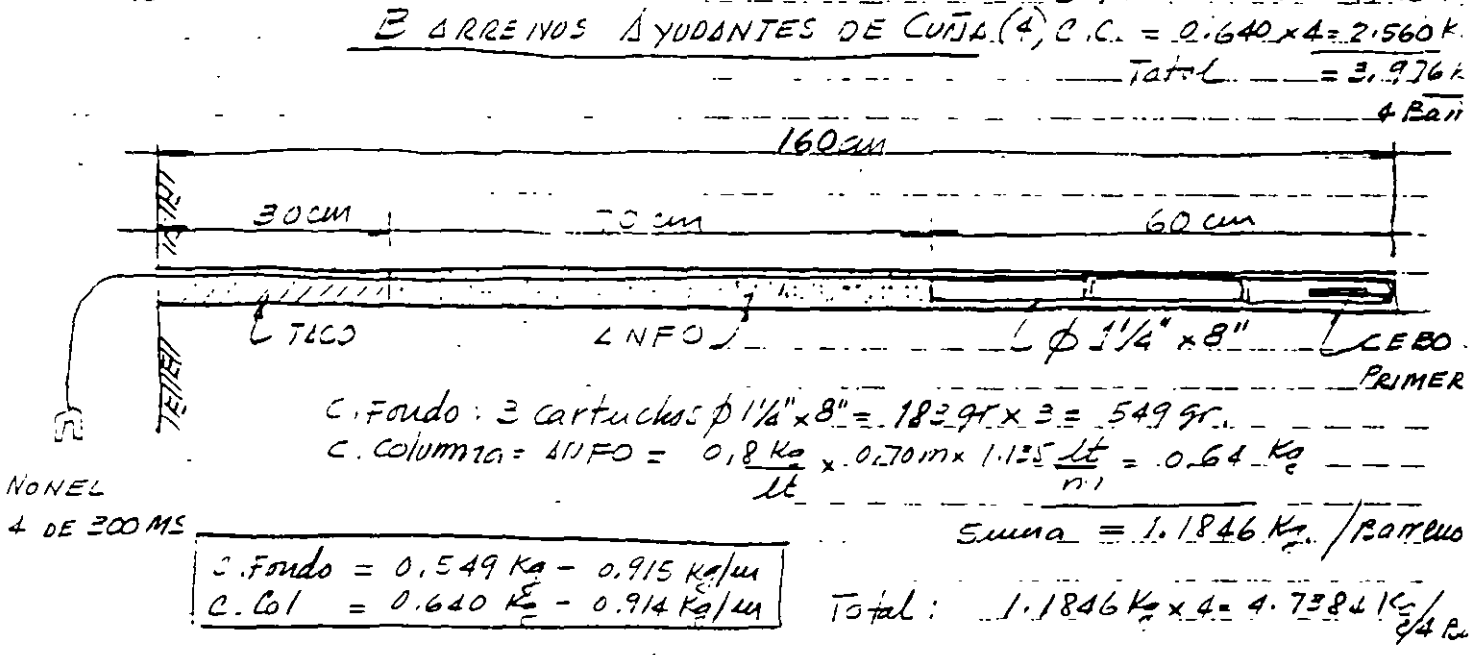 BARRENOS AYUDANTES DE CUÑA (4) C.C. = 0.640 x 4 = 2.560 K.
Total = 3.976 K
4 Barr
160 cm
30 cm 70 cm 60 cm
TACO ANFO ϕ 1 1/4" x 8" CEBO
PRIMER
C. Fondo: 3 cartuchos ϕ 1 1/4" x 8" = 183 gr x 3 = 549 gr.
C. Columna = ANFO = 0,8 Kg/lt x 0.70 m x 1.135 lt/m = 0.64 Kg
NONEL
4 DE 300 MS
Suma = 1.1846 Kg. / Barreno
C. Fondo = 0.549 Kg - 0.915 Kg/m
C. Col = 0.640 Kg - 0.914 Kg/m
Total: 1.1846 Kg x 4 = 4.7384 Kg/4 Ba